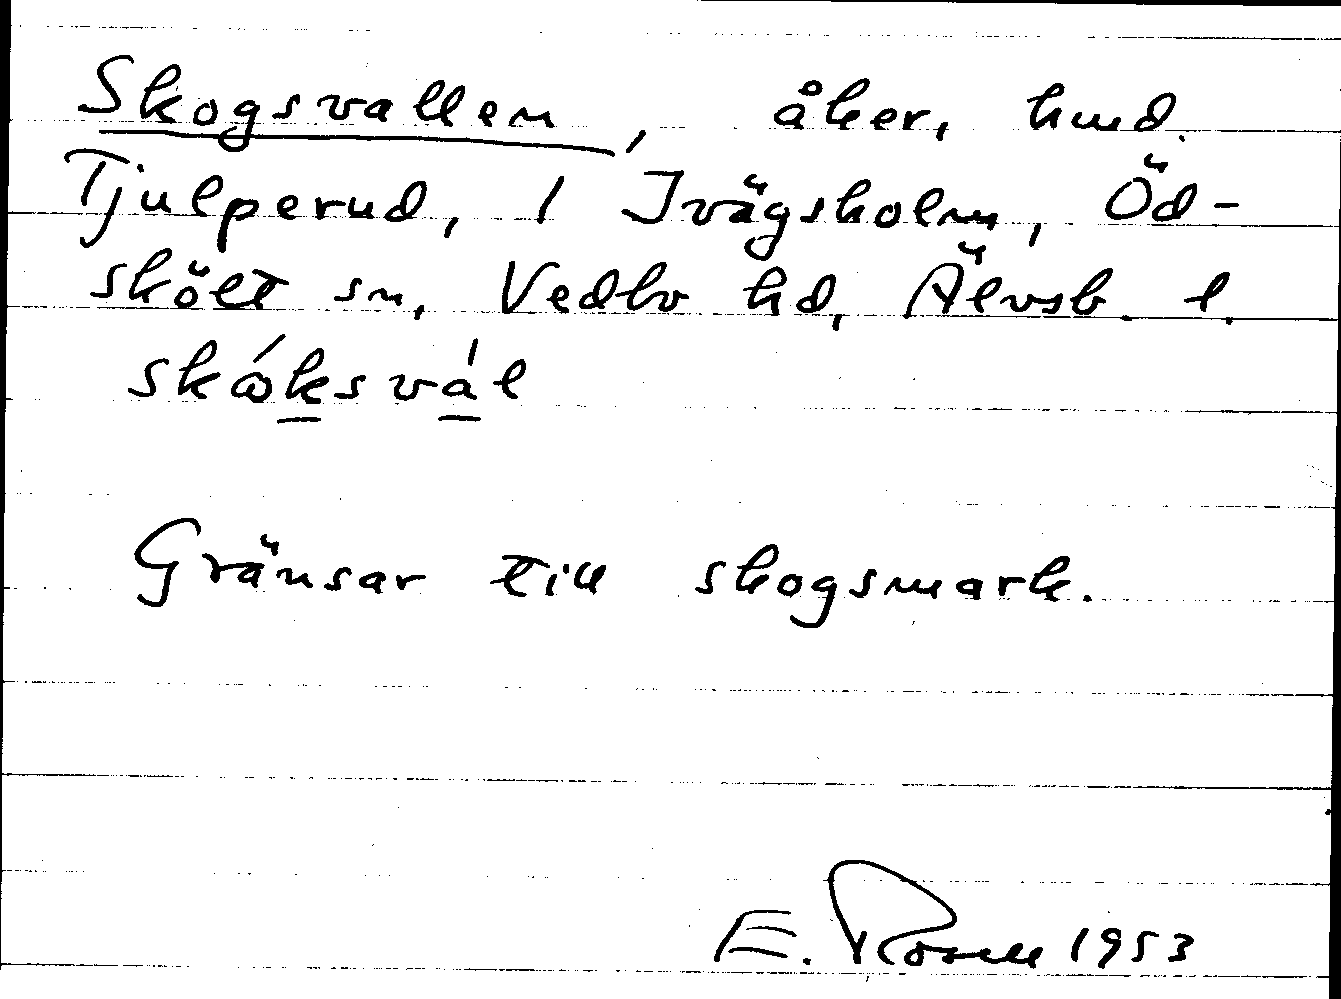 Skogsvallen, åker, hmd.
Tjulperud, 1 Ivägsholm, Öd-
skölt sn, Vedbo hd, Älvsb. l.
Gränsar till skogsmark.
E. Rosell 1953